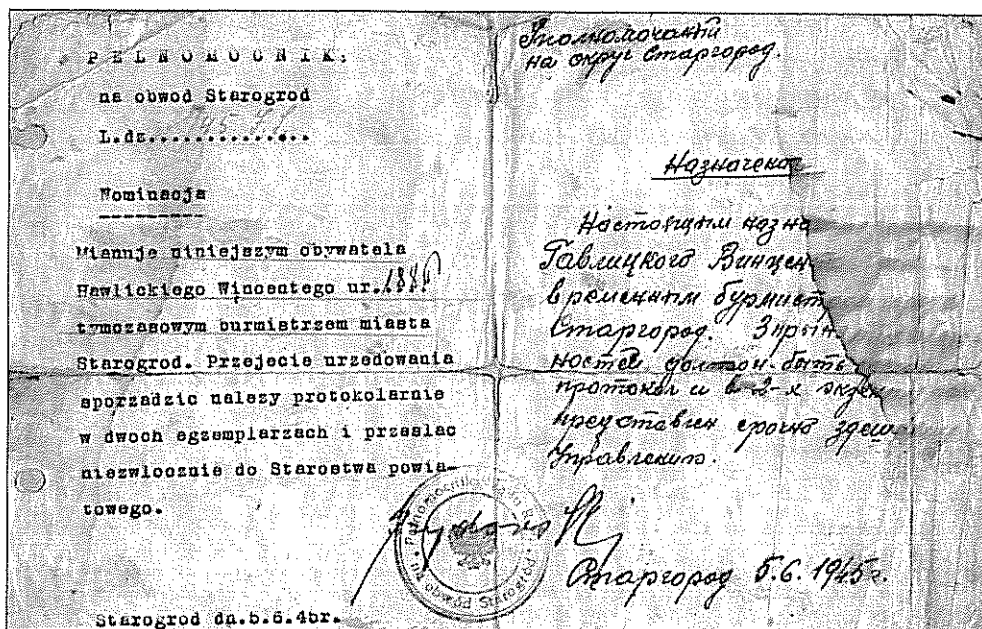 PELNOMOCNIK.
na obwod Starogrod
L.dz..............
Nominacja
Mianuje niniejszym obywatela
Hawlickiego Wincentego ur.
tymczasowym burmistrzem miasta
Starogrod. Przejecie urzedowania
sporzadzic nalezy protokolarnie
w dwoch egzemplarzach i przeslac
niezwlocznie do Starostwa powia-
towego.
Starogrod dn.5.6.45r.
на округ Старгород.
Настоящим назна
Гавлицкого Винцен
временным бурмист
Старгород.
должен быть
протокол и в 2-х экзем
представлен срочно здеш
Управлению.
Старгород 5.6.1945г.
na obwód Starogród